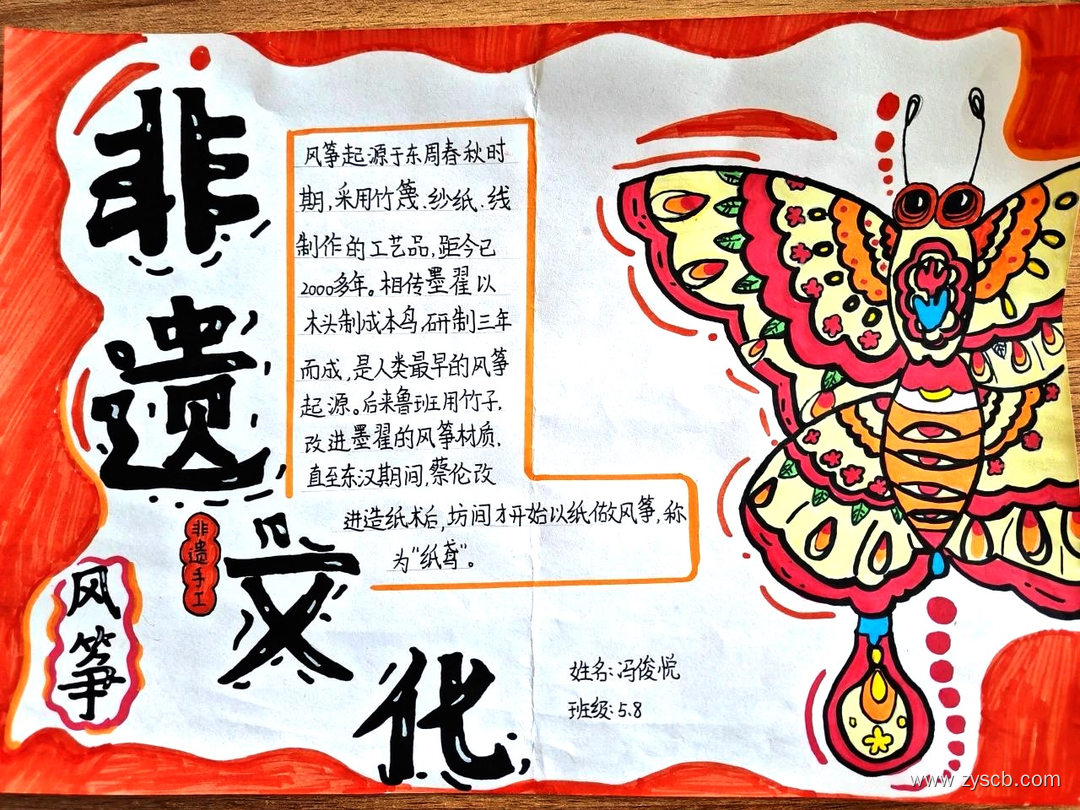 非遗文化
风筝起源于东周春秋时
期,采用竹篾、纱纸、线
制作的工艺品,距今已
2000多年。相传墨翟以
木头制成本鸟,研制三年
而成,是人类最早的风筝
起源。后来鲁班用竹子,
改进墨翟的风筝材质,
直至东汉期间,蔡伦改
进造纸术后,坊间才开始以纸做风筝,称
为"纸鸢"。
非遗手工
风筝
姓名:冯俊悦
班级:5.8
www.zyscb.com